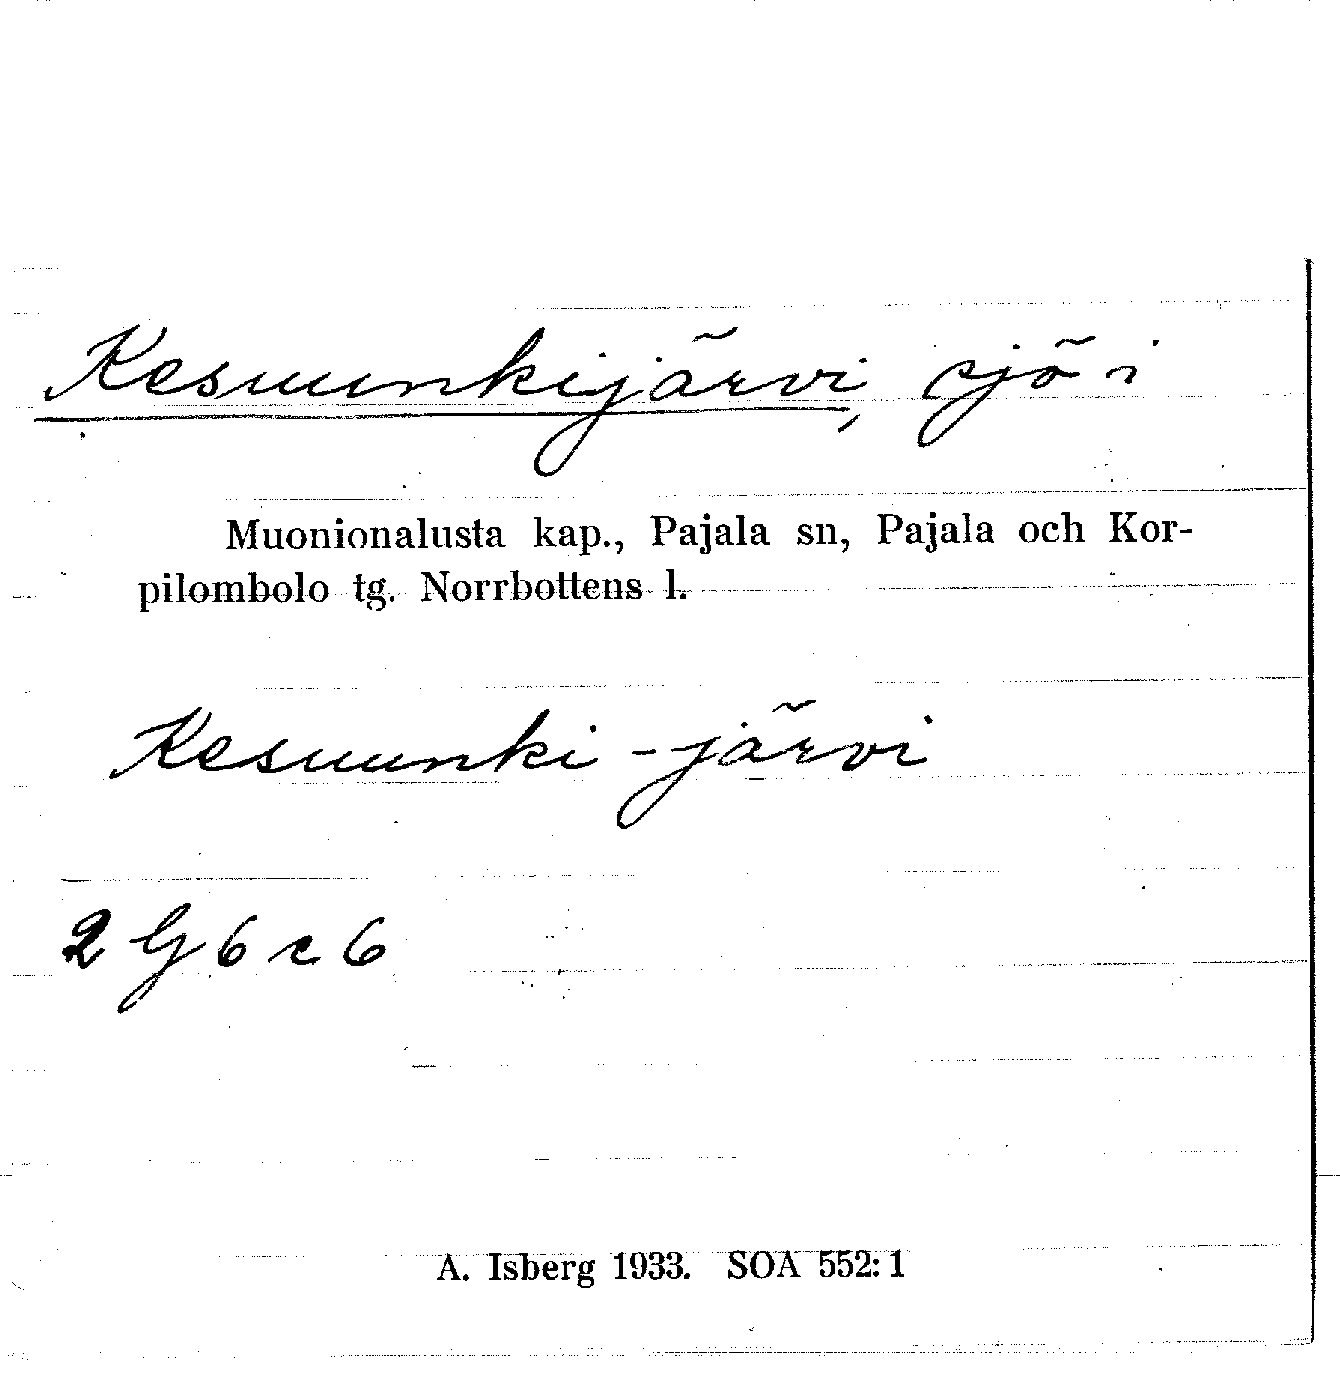 Kesuunkijärvi, sjö i
Muonionalusta kap., Pajala sn, Pajala och Kor-
pilombolo tg. Norrbottens l.
Kesuunki-järvi
2 G 6 c 6
A. Isberg 1933. SOA 552:1